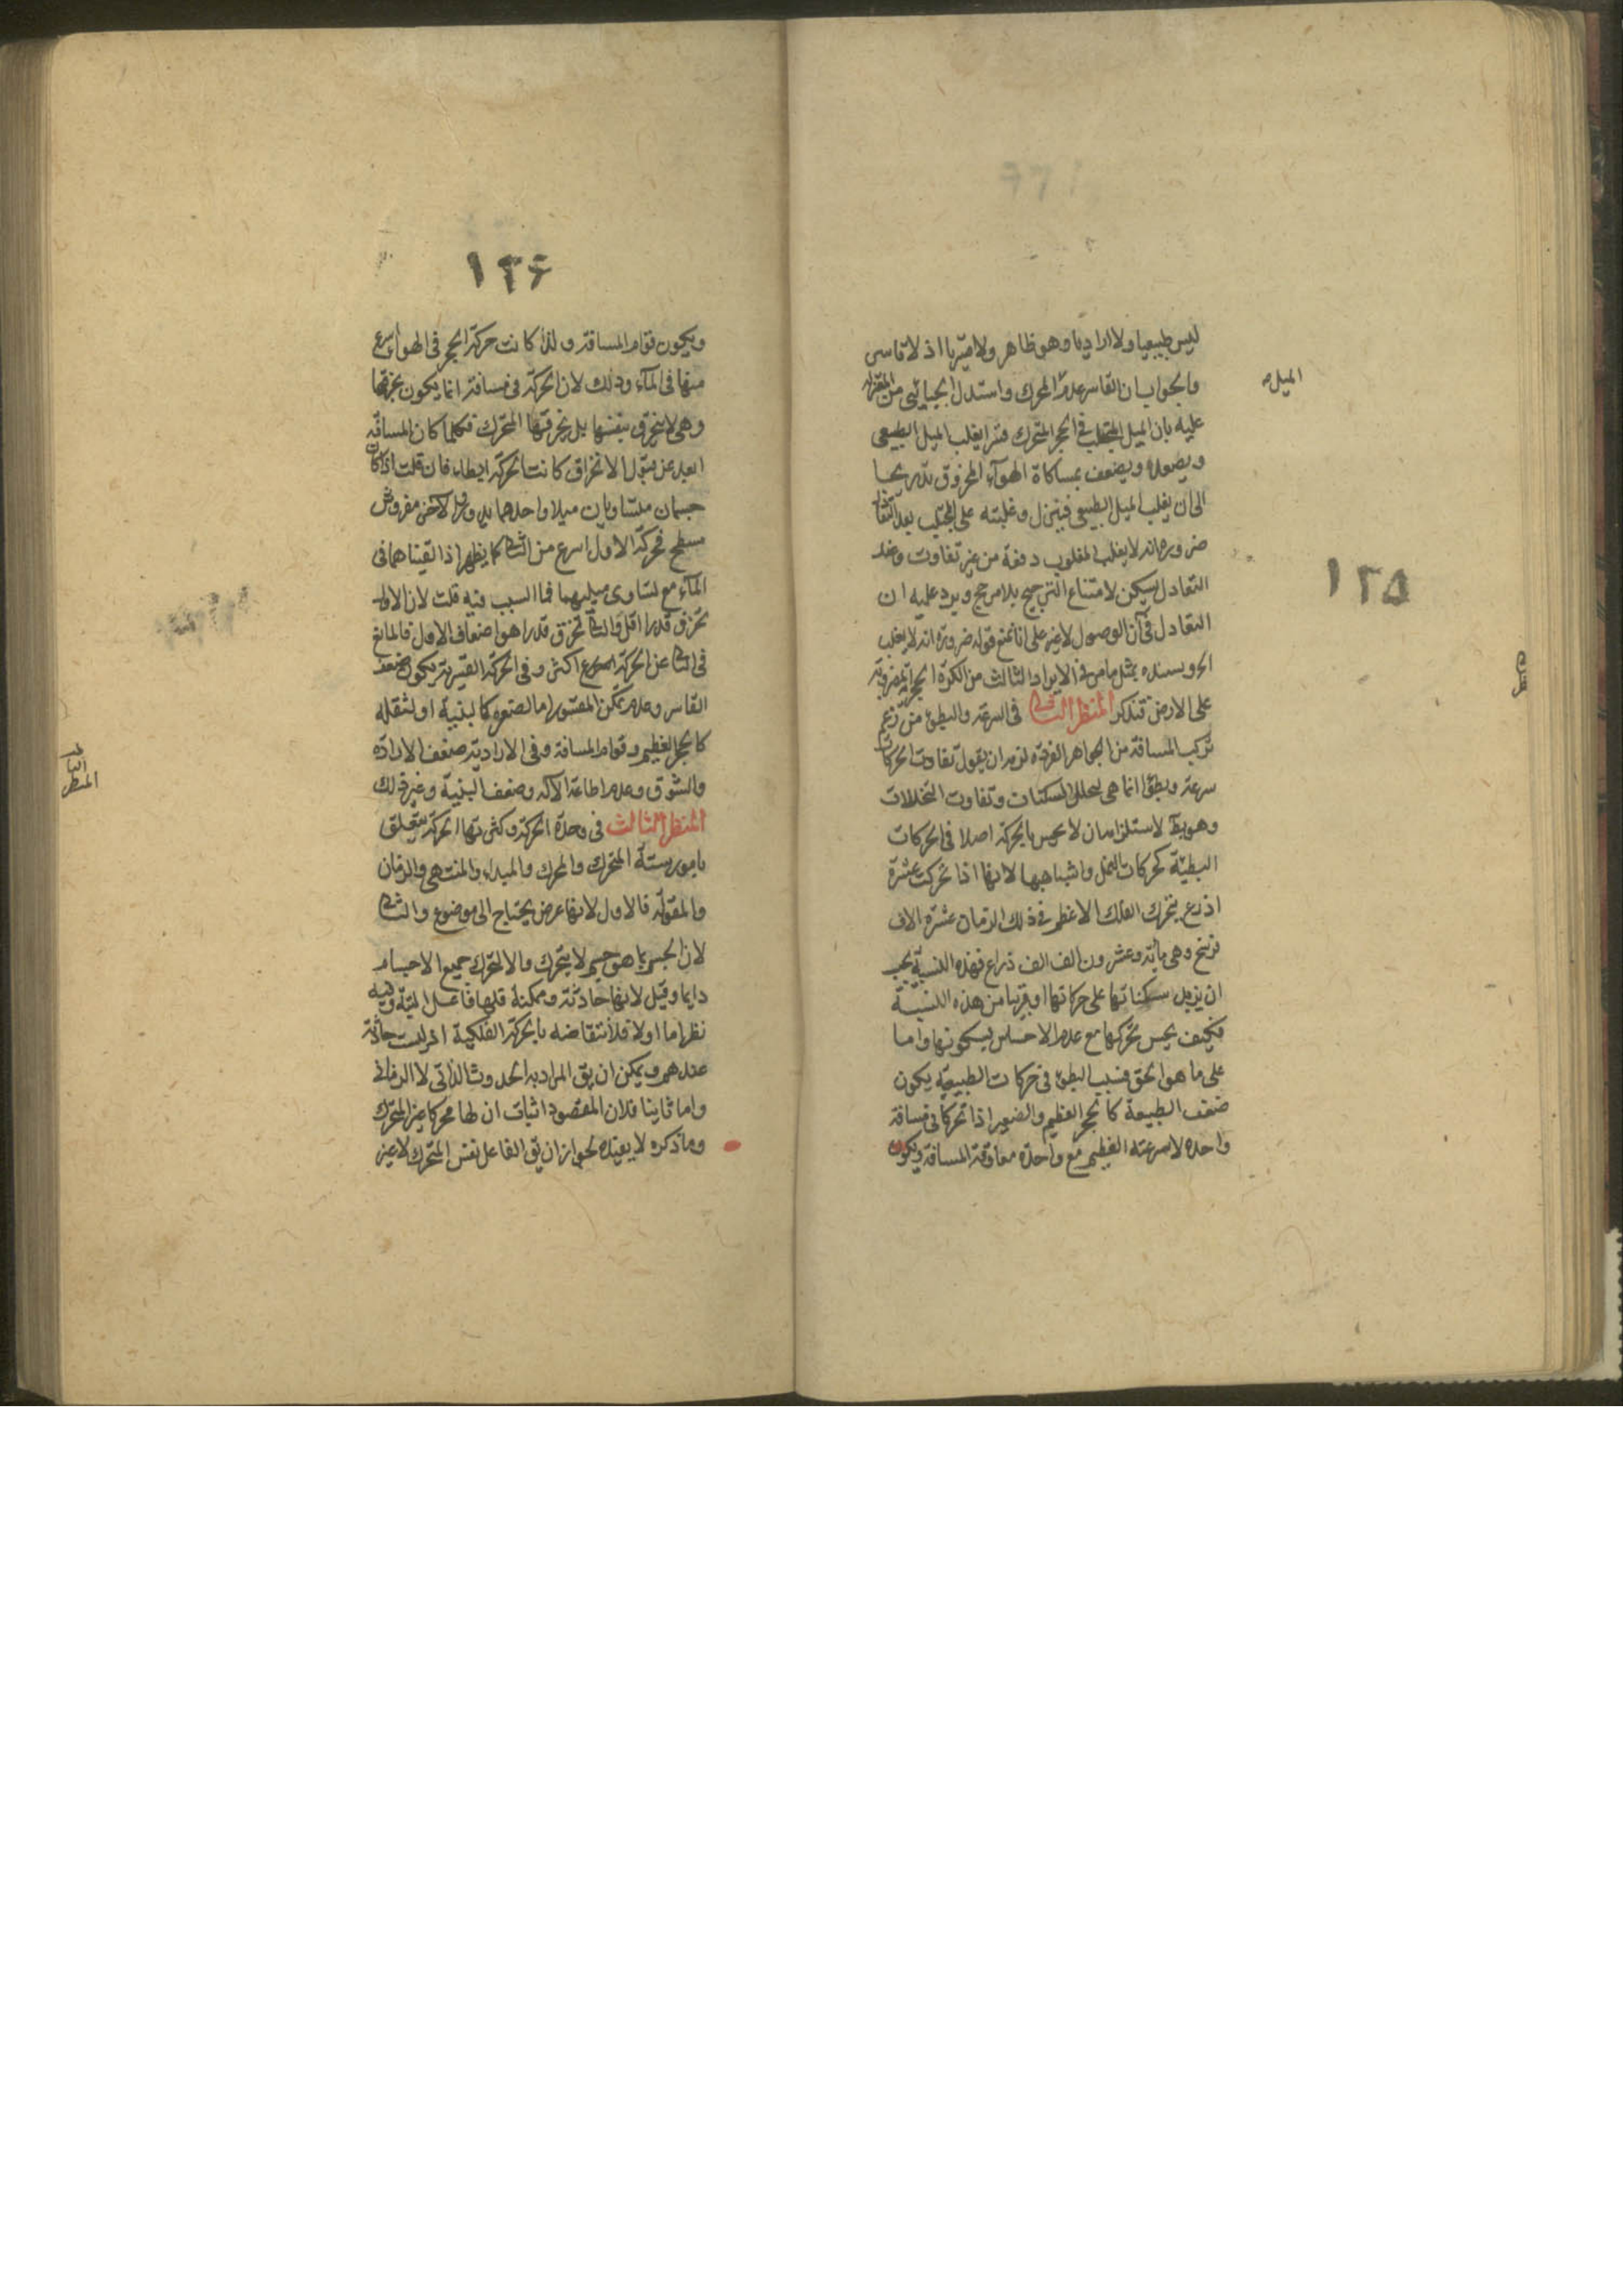 ١٢٥
ليس طبيعيا ولا اراديا وهو ظاهر ولا قسريا اذ لا قاسر
والجواب ان القاسر عدم المحرك واستدل الجبائى من المعتزلة
الميل
عليه بان الميل المجتلب فى الحجر المتحرك قسرا يغلب الميل الطبيعى
ويصعده ويضعف بمصاكاة الهوآء المخروق تدريجا
الى ان يغلب الميل الطبيعى فينزل وغلبته على المجتلب بعد التعادل
ضرورة انه لا يغلب المغلوب دفعة من غير تفاوت وعند
التعادل يسكن لامتناع الترجيح بلا مرجح ويرد عليه ان
التعادل فى آن الوصول لا غير على انا نمنع قوله ضرورة انه لا يغلب
الخ ويسنده بمثل ما مر فى الايراد الثالث من الكرة الحجرية المضروبة
على الارض فتذكر المنظر الثانى فى السرعة والبطؤ من زعم
تركب المسافة من الجواهر الفردة لزمه ان يقول تفاوت الحركات
سرعة وبطؤا انما هى لتخلل السكنات وتفاوت التخللات
وهو بط لاستلزامه ان لا يحس بالحركة اصلا فى الحركات
البطيئة كحركات النمل واشباهها لانها اذا تحركت عشرة
اذرع يتحرك الفلك الاعظم فى ذلك الزمان عشرة الاف
فرسخ وهى مائة وعشرون الف الف ذراع فهذه النسبة يجب
ان يزيد سكناتها على حركاتها او قريبا من هذه النسبة
فكيف يحس بحركتها مع عدم الاحساس بسكونها واما
على ما هو الحق فسبب البطؤ فى حركات الطبيعية يكون
ضعف الطبيعة كالحجر العظيم والصغير اذا تحركا فى مسافة
واحدة لا سرعته العظيم مع واحدة معاوقة المسافة ويكون
١٢۶
ويكون قوام المسافة ولذا كانت حركة الحجر فى الهوآء اسرع
منها فى المآء وذلك لان الحركة فى مسافة انما يكون بخرقها
وهى لا ينخرق بنفسها بل يخرقها المتحرك فكلما كان المسافة
ابعد عن قبول الانخراق كانت الحركة ابطاء فان قلت اذا كان
جسمان متساويان ميلا واحدهما مدور والاخر مفروش
مسطح فحركة الاول اسرع من الثانى كما يظهر اذا القيناهما فى
المآء مع تساوى ميليهما فما السبب فيه قلت لان الاول
يخرق قدرا اقل والثانى يخرق قدرا هو اضعاف الاول فالمانع
فى الثانى عن الحركة اكثر وفى الحركة القسرية يكون ضعف
القاسر وعدم تمكن المقسور اما لصغره كالبنية او لثقله
كالحجر العظيم وقوام المسافة وفى الارادية ضعف الارادة
والشوق وعدم اطاعة الآلة وضعف البنية وغير ذلك
المنظر الثالث فى وحدة الحركة وكثرتها الحركة يتعلق
بامور ستة المتحرك والمحرك والمبداء والمنتهى والزمان
والمقولة فالاول لانها عرض يحتاج الى موضوع والثانى
لان الجسم بما هو جسم لا يتحرك والا لتحرك جميع الاجسام
دايما وقيل لانها حادثة وممكنة فلها فاعل البتة وفيه
نظر اما اولا فلانتقاضه بالحركة الفلكية اذ ليست حادثة
عندهم ويمكن ان يق المراد به الحدوث الذاتى لا الزمانى
واما ثانيا فلان المقصود اثبات ان لها محركا غير المتحرك
وما ذكره لا يفيده لجواز ان يق الفاعل نفس المتحرك لا غير